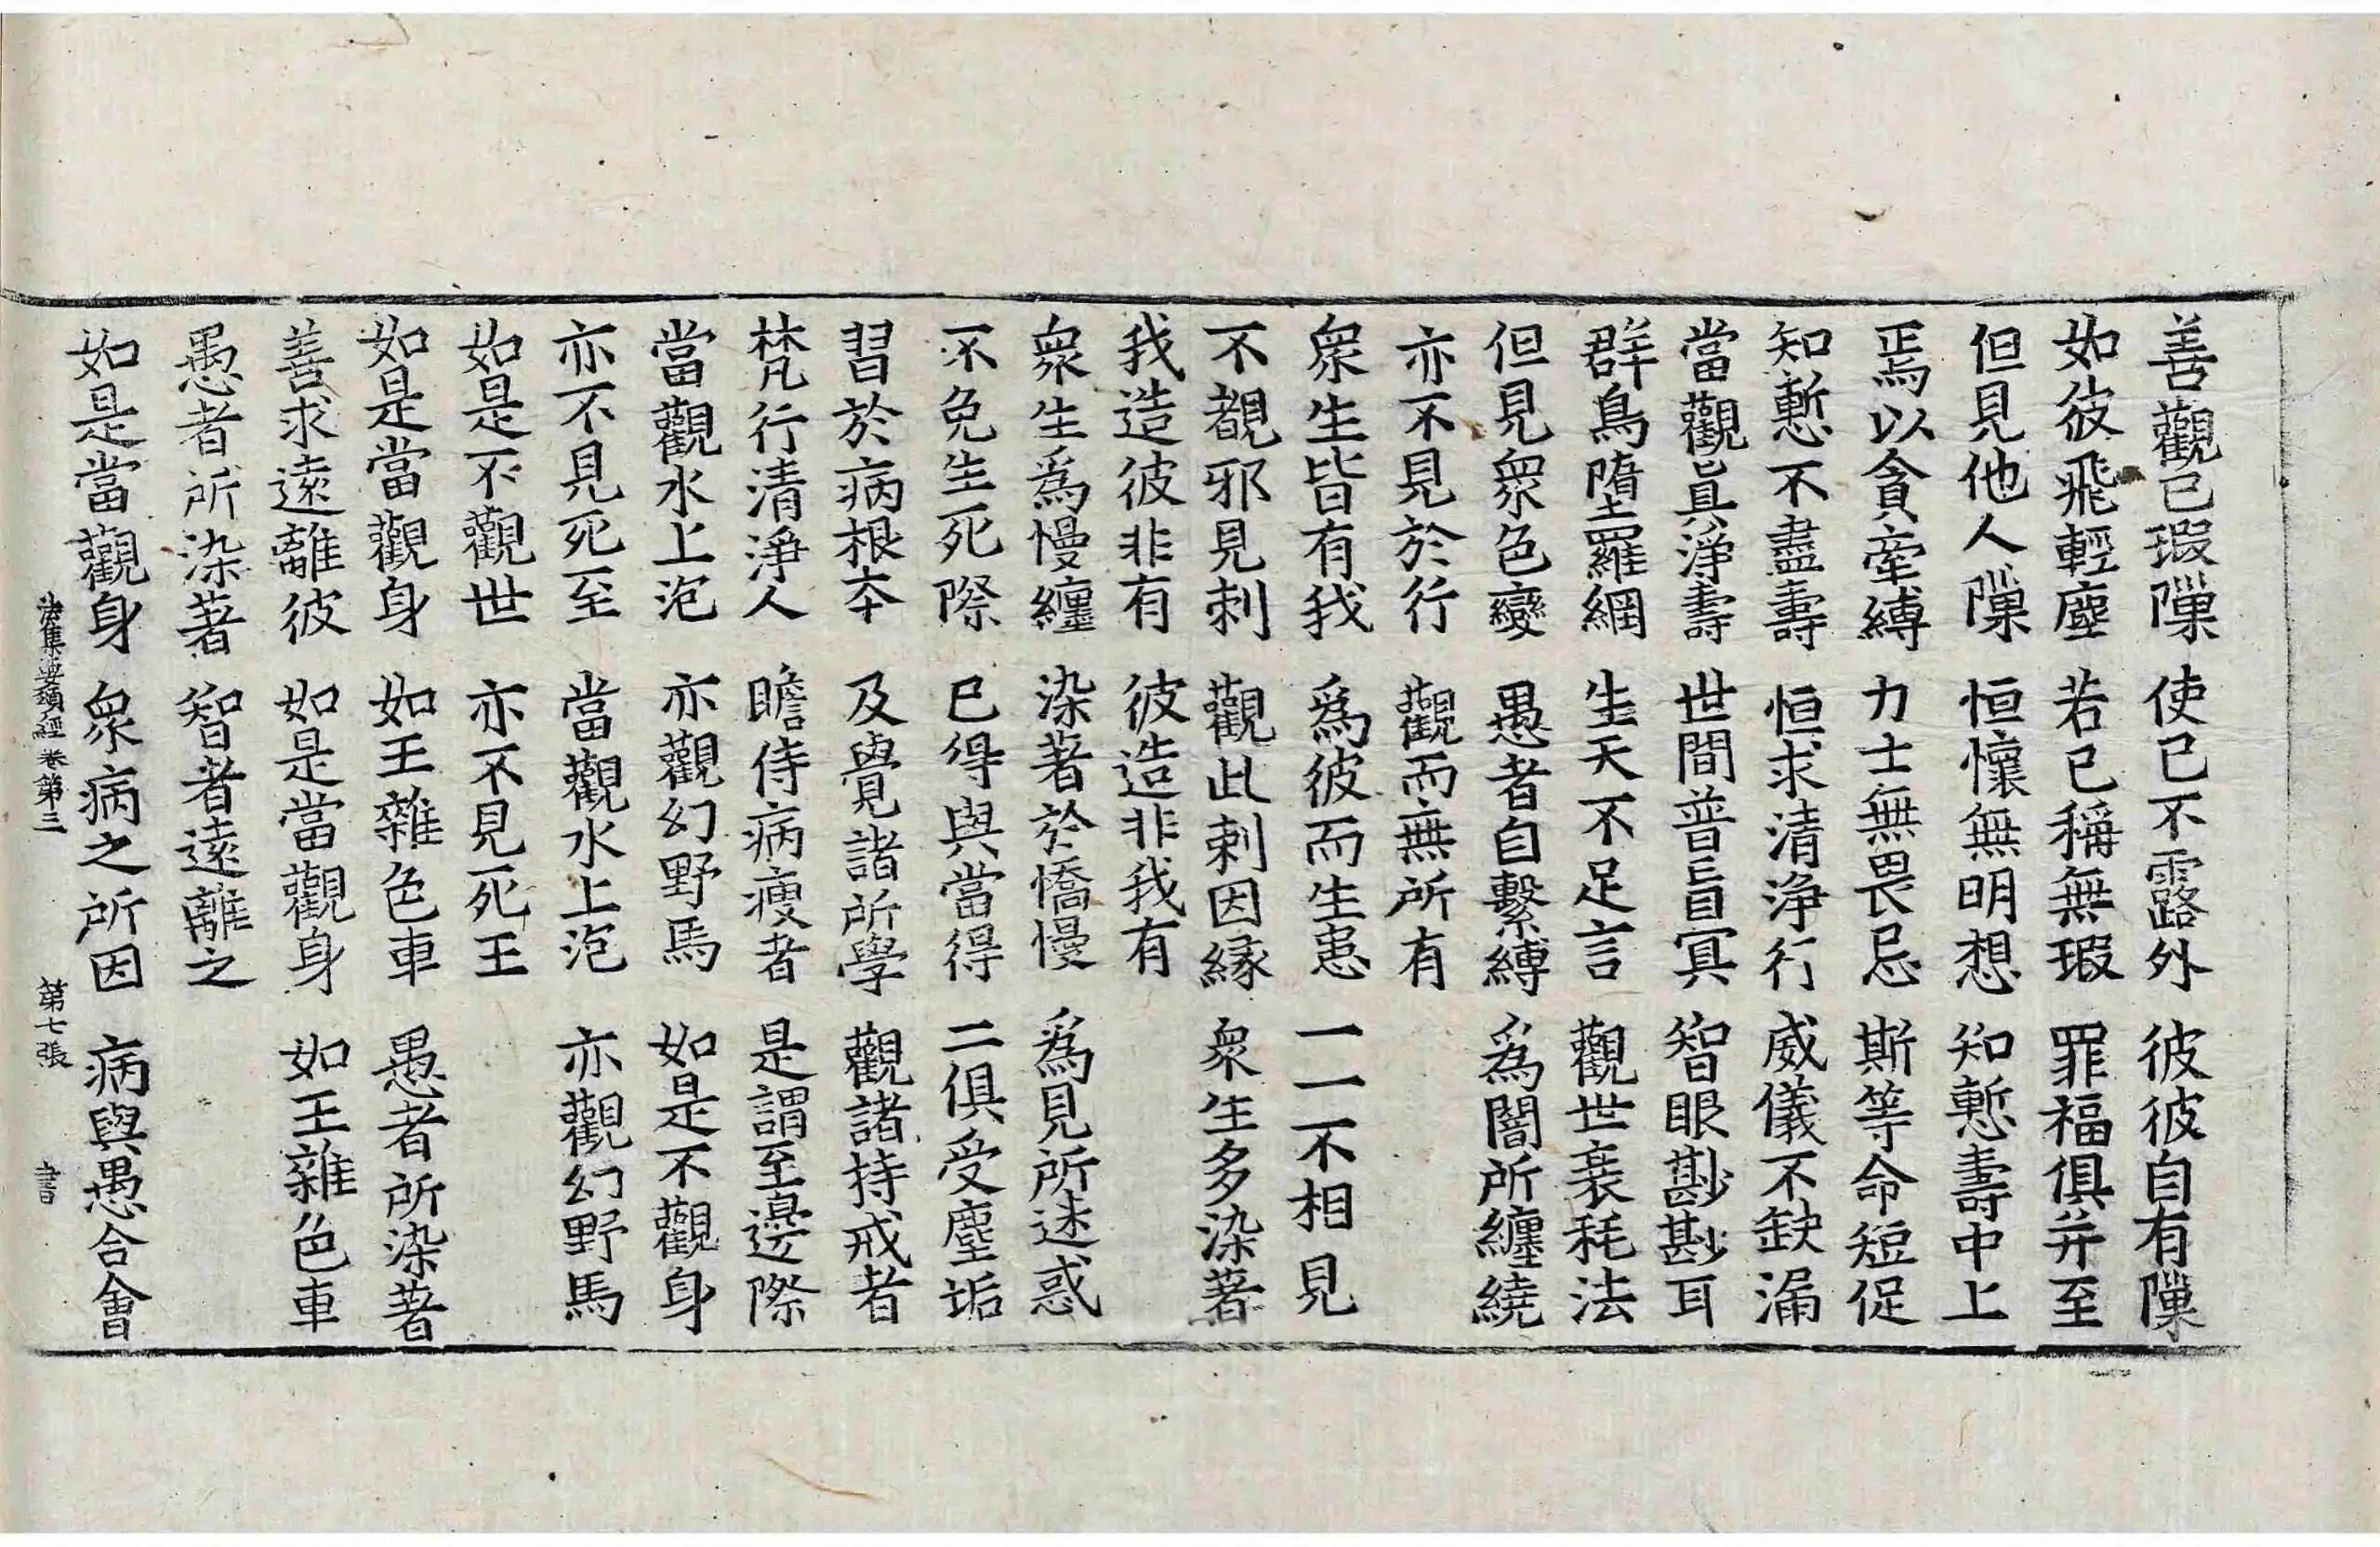 善觀已瑕隟 使已不露外 彼彼自有隟
如彼飛輕塵 若已稱無瑕 罪福俱并至
但見他人隟 恒懷無明想 知慙壽中上
焉以貪牽縛 力士無畏忌 斯等命短促
知慙不盡壽 恒求清淨行 威儀不缺漏
當觀眞淨壽 世間普盲冥 智眼尠尠耳
群鳥墮羅網 生天不足言 觀世衰耗法
但見衆色變 愚者自繫縛 爲闇所纏繞
亦不見於行 觀而無所有
衆生皆有我 爲彼而生患 一一不相見
不覩邪見刺 觀此刺因緣 衆生多染著
我造彼非有 彼造非我有
衆生爲慢纏 染著於憍慢 爲見所迷惑
不免生死際 已得與當得 二俱受塵垢
習於病根本 及覺諸所學 觀諸持戒者
梵行清淨人 瞻侍病瘦者 是謂至邊際
當觀水上泡 亦觀幻野馬 如是不觀身
亦不見死至 當觀水上泡 亦觀幻野馬
如是不觀世 亦不見死王
如是當觀身 如王雜色車 愚者所染著
善求遠離彼 如是當觀身 如王雜色車
愚者所染著 智者遠離之
如是當觀身 衆病之所因 病與愚合會
法集要頌經卷第三 第七張 書